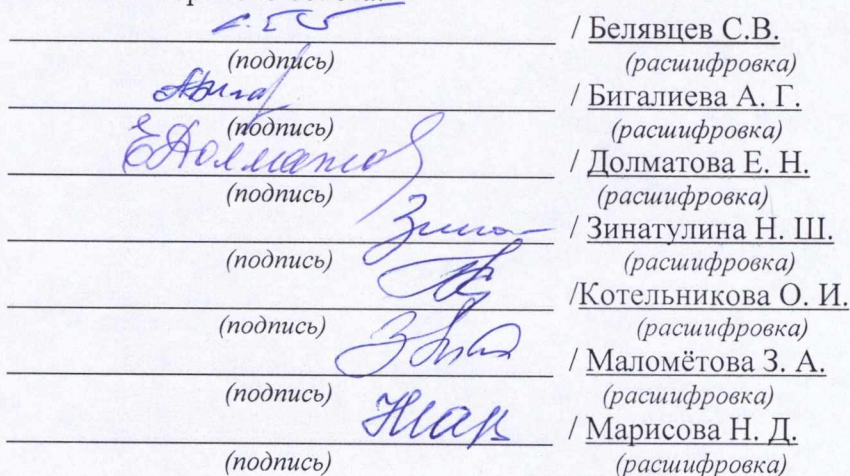 / Белявцев С.В.
(подпись) (расшифровка)
/ Бигалиева А. Г.
(подпись) (расшифровка)
ЕДолматов / Долматова Е. Н.
(подпись) (расшифровка)
/ Зинатулина Н. Ш.
(подпись) (расшифровка)
/Котельникова О. И.
(подпись) (расшифровка)
/ Маломётова З. А.
(подпись) (расшифровка)
/ Марисова Н. Д.
(подпись) (расшифровка)